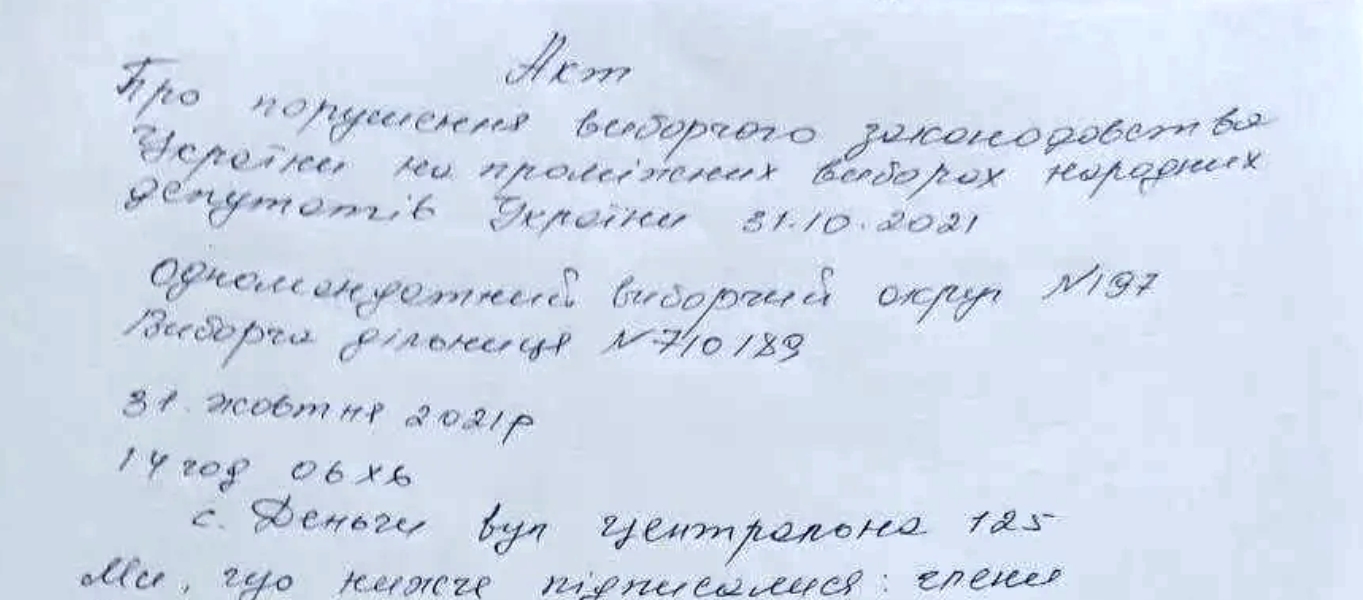 Акт
Про порушення виборчого законодавства
України на проміжних виборах народних
депутатів України 31.10.2021
Одномандатний виборчий округ №197
Виборча дільниця №710189
31. жовтня 2021р
14 год 06 хв
с. Деньги вул Центральна 125
Ми, що нижче підписалися: члени